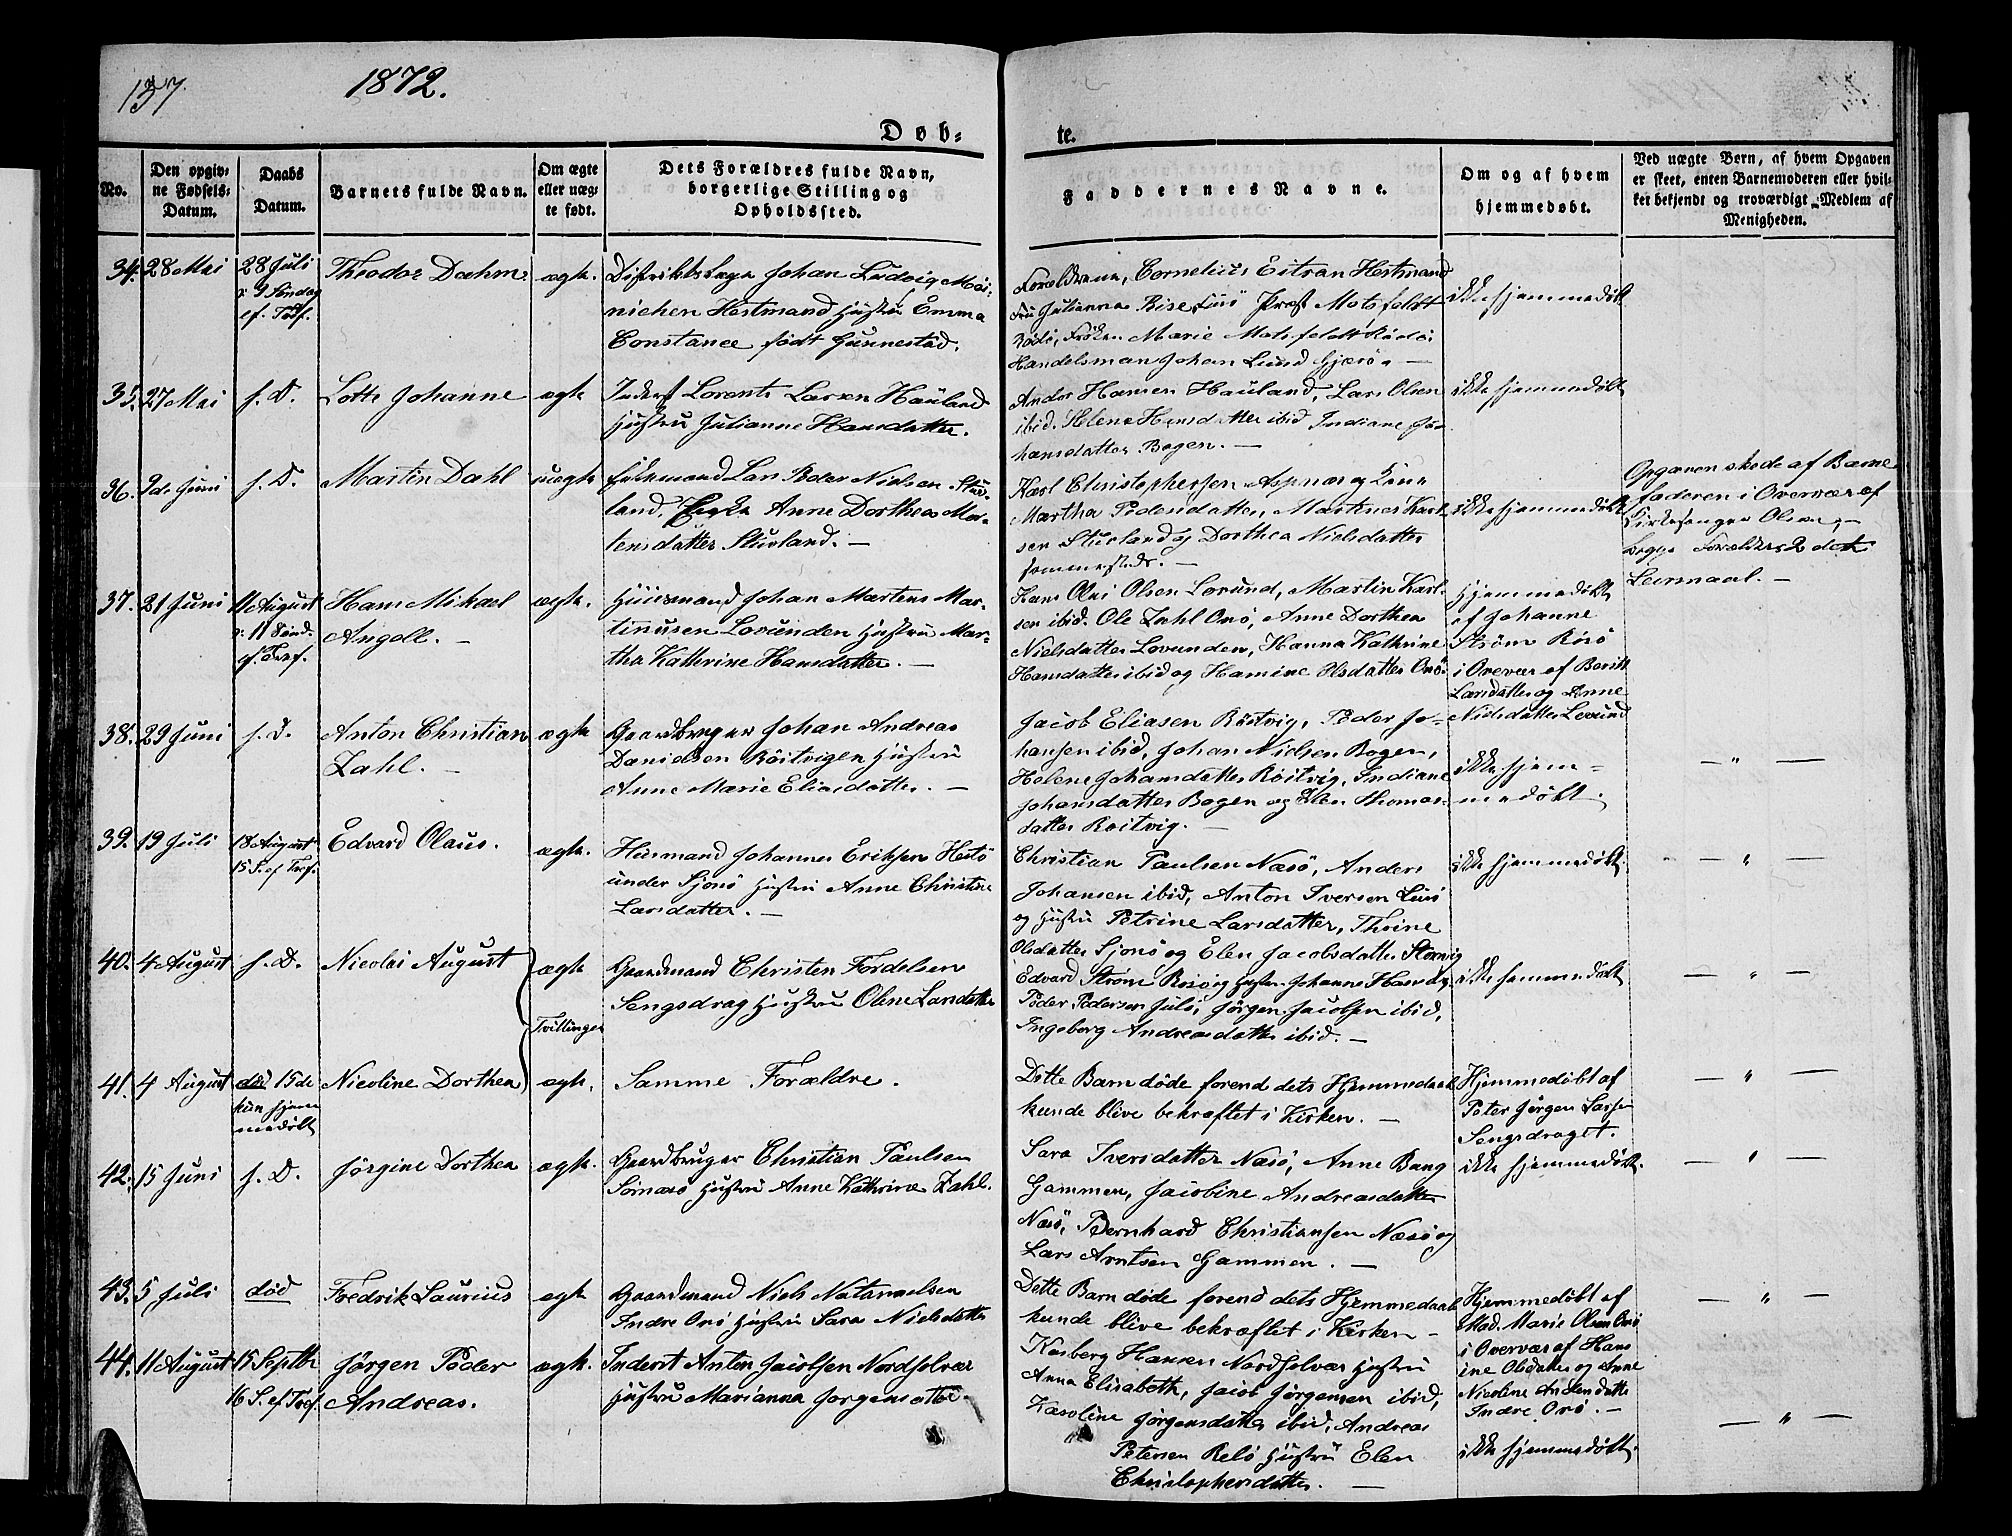 137.
1872.
Døb-
te.
No.
Den opgiv-
ne Fødsels-
Datum.
Daabs
Datum.
Barnets fulde Navn.
Om ægte
eller uæg-
te født.
Dets Forældres fulde Navn,
borgerlige Stilling og
Opholdssted.
Faddernes Navne.
Om og af hvem
hjemmedøbt.
Ved uægte Børn, af hvem Opgaven
er skeet, enten Barnemoderen eller hvil-
ket bekjendt og troværdigt Medlem af
Menigheden.
34. 28 Mai
28 Juli
9 Søndag
ef. Tref.
Theodor Dæhm
ægte.
Distriktslæge Johan Ludvig Møi-
nichen Hestmand Hustru Emma
Constance født Gunnestad.
Forældrene, Cornelius Eitran Hestmand
Fru Julianna Bise Luø Præst Motzfeldt
Rødø, Frøken Marie Motzfeldt Rødø
Handelsman Johan Lund Gjærø.
ikke hjemmedøbt
35. 27 Mai
s. D.
Lotte Johanne
ægte
Inderst Lorents Larsen Hauland
Hustru Julianne Hansdatter.
Anders Hansen Hauland, Lars Olsen
ibid. Helene Hansdatter ibid Indiane Jo-
hansdatter Bogen. —
ikke hjemmedøbt
36. 2de Juni
s. D.
Martin Dahl
uægte
Enkemand Lars Peder Nielsen Stu-
land. Enke Anne Dorthea Mor-
tensdatter Stuvland. —
Karl Christophersen Aspnæs og Kone
Martha Pedersdatter, Martines Karl-
sen Stuvland og Dorthea Nielsdatter
sammesteds. —
ikke hjemmedøbt
Opgaven skede af Barne
faderen i Overvær af
Kirkesanger Olsen, —
begge Forældres 2det
Leiermaal. —
37. 21 Juni
11 August
11 Sønd.
ef. Tref.
Hans Mikael
Angell. —
ægte.
Huusmand Johan Mortens Mar-
tinusen Lovunden Hustru Mar-
tha Kathrine Hansdatter. —
Hans Olai Olsen Lovund, Martin Karl-
sen ibid. Ole Zahl Onø, Anne Dorthea
Nielsdatter Lovunden, Hanna Kathrine
Hansdatter ibid og Hamine Olsdatter Onø.
Hjemmedøbt
af Johanne
Strøm Rosø
i Overvær af Beritt
Larsdatter og Anne
Nielsdatter Lovund
38. 29 Juni
s. D.
Anton Christian
Zahl. —
ægte
Gaardbruger Johan Andreas
Danielsen Røitvigen Hustru
Anne Marie Eliasdatter. —
Jacob Eliasen Røitvig, Peder Jo-
hansen ibid, Johan Nielsen Bogen,
Helene Johansdatter Røitvig, Indiane
Johansdatter Bogen og Elen Thomas-
datter Røitvig. —
ikke hjem-
medøbt.
— " —
39. 19 Juli
18 August
15 S. ef. Tref.
Edvard Olaus.
ægte.
Husmand Johannes Eriksen Hestø
under Sjonø Hustru Anne Christine
Larsdatter. —
Christian Paulsen Næsø, Anders
Johansen ibid, Anton Iversen Luø
og Hustru Petrine Larsdatter, Thrine
Olsdatter Sjonø og Elen Jacobsdatter Storvig
ikke hjemmedøbt.
— " —
40. 4 August
s. D.
Nicolai August
ægte
Tvillinger
Gaardmand Christen Fordelsen
Sengsdrag Hustru Olene Larsdatter
Edvard Strøm Rosø og Hustru Johanne Hansd.
Peder Pedersen Julø, Jørgen Jacobsen ibid,
Ingeborg Andreasdatter ibid. —
ikke hjemmedøbt
— " —
41. 4 August
død 15de
kun hjem
medøbt
Nicoline Dorthea
ægte.
Samme Forældre.
Dette Barn døde førend dets Hjemmedaab
kunde blive bekræftet i Kirken. —
Hjemmedøbt af
Peter Jørgen Larsen
Sengsdraget.
— " —
42. 15 Juni
s. D.
Jørgine Dorthea
ægte.
Gaardbruger Christian Paulsen
Sørnæsø Hustru Anne Kathrine Zahl.
Sara Iversdatter Næsø, Anne Bang
Gammen, Jacobine Andreasdatter
Næsø, Bernhard Christiansen Næsø og
Lars Arntsen Gammen. —
ikke hjemmedøbt.
— " —
43. 5 Juli
død
Fredrik Laurius
ægte
Gaardmand Niels Natanaelsen
Indre Onø Hustru Sara Nielsdatter
Dette Barn døde førend dets Hjemmedaab
kunde blive bekræftet i Kirken —
Hjemmedøbt af
Mad. Marie Olsen Onø
i Overvær af Hans
ine Olsdatter og Anne
Nicoline Andersdatter
Indre Onø. —
— " —
44. 11 August
15 Septbr
16 S. ef. Tref.
Jørgen Peder
Andreas.
ægte.
Inderst Anton Jacobsen Nordsolvær
Hustru Marianna Jørgensdatter
Karberg Hansen Nordsolvær Hustru
Anna Elisabeth, Jacob Jørgensen ibid,
Karoline Jørgensdatter ibid, Andreas
Petersen Relø Hustru Elen
Christophersdatter. —
ikke hjemmedøbt.
— " —